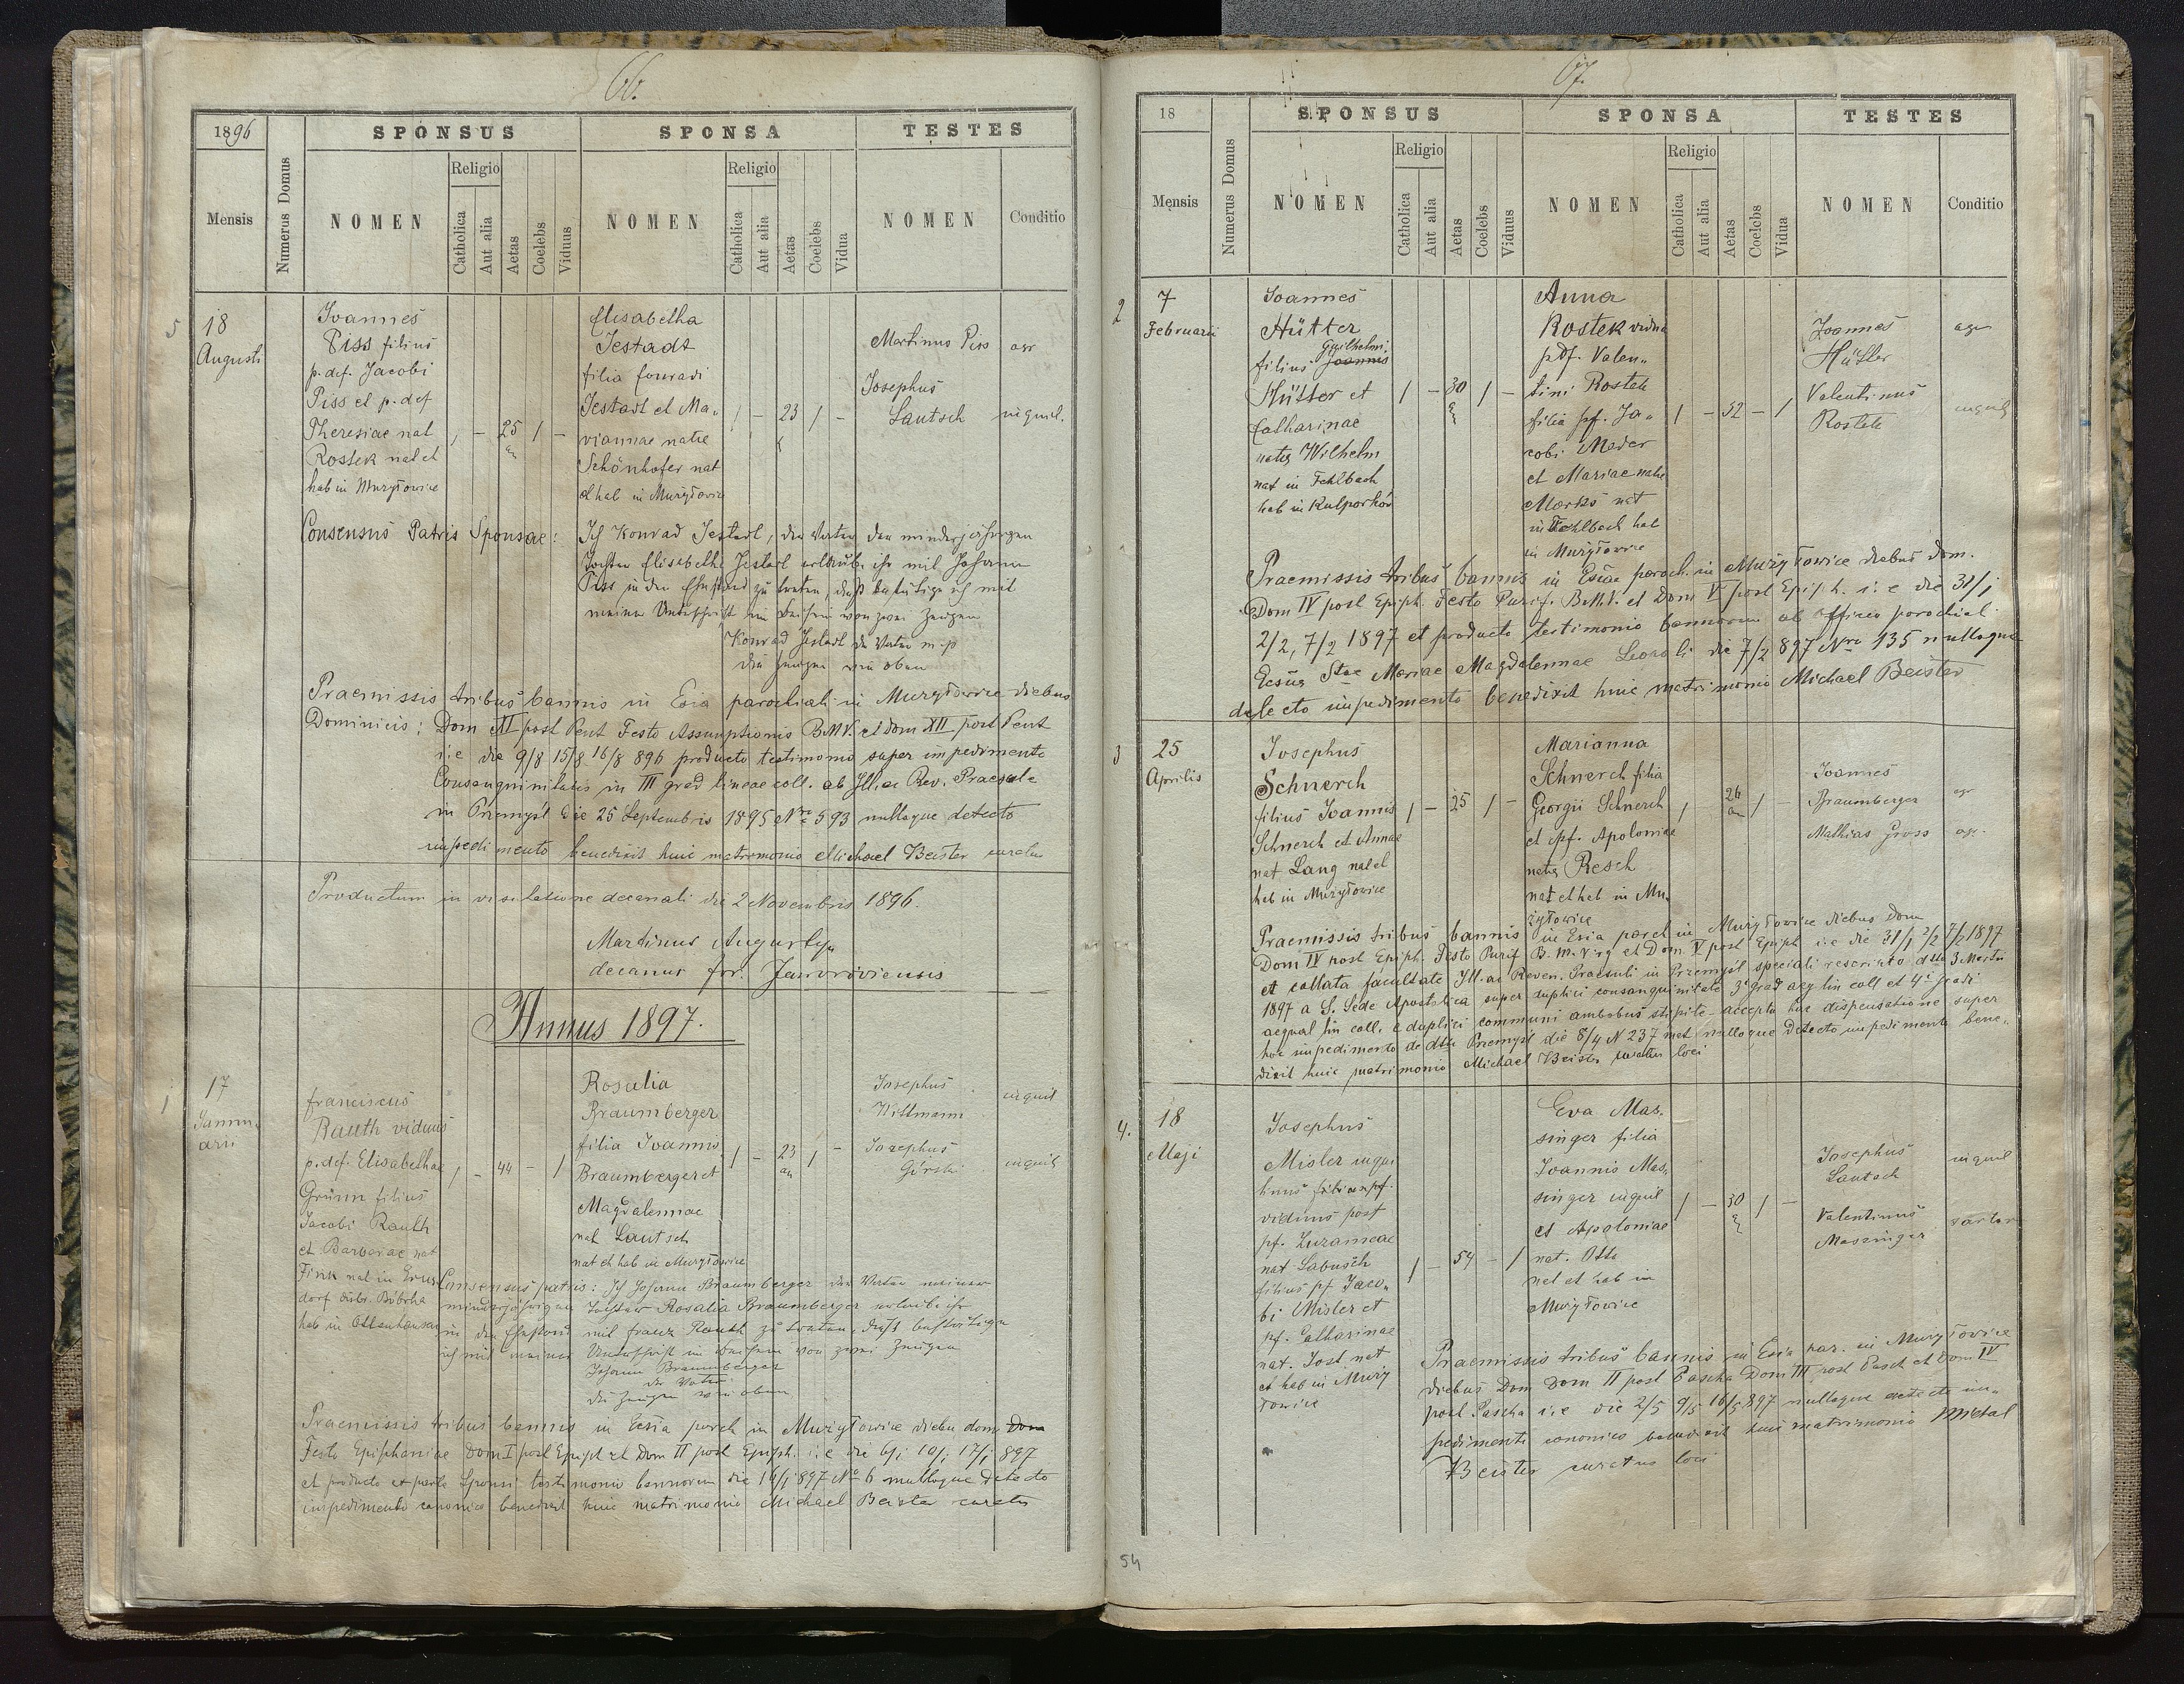 66.
1896
SPONSUS
SPONSA
TESTES
Mensis
Numerus Domus
NOMEN
Religio
Catholica
Aut alia
Aetas
Coelebs
Viduus
NOMEN
Religio
Catholica
Aut alia
Aetas
Coelebs
Vidua
NOMEN
Conditio
5
18
Augusti
Joannes
Piss filius
p. def. Jacobi
Piss et p. def
Theresiae nat
Rostek nat et
hab in Muzyłowice
1 – 25 an 1 –
Elisabetha
Jestadt
filia Conradi
Jestadt et Ma-
riannae natae
Schönhofer nat
et hab in Muzyłowice
1 – 23 1 –
Martinus Piss agr
Josephus
Lautsch inquil.
Consensus Patris Sponsae: Ich Konrad Jestadt, der Vater der minderjährigen
Tochter Elisabeth Jestadt erlaube ihr mit Johann
Piss in den Ehestand zu treten, dieß bestätige ich mit
meiner Unterschrift im Beisein von zwei Zeugen
Konrad Jestadt der Vater m.p
die Zeugen wie oben
Praemissis tribus bannis in Ecsia parochiali in Muzyłowice diebus
Dominicis: Dom XI post Pent Festo Assumptionis B.M.V. et Dom XII post Pent
i.e die 9/8 15/8 16/8 896 producto testimonio super impedimento
Consanguinitatis in III grad lineae coll. ab Ill. ac Rev. Praesule
in Przemyśl die 25 Septembris 1895 Nro 593 nulloque detecto
impedimento benedixit huic matrimonio Michael Beister curatus
Productum in visitatione decanali die 2 Novembris 1896.
Martinus
decanus for. Javoroviensis
Annus 1897.
1
17
Janu-
arii
Franciscus
Rauth viduus
p. def. Elisabethae
Grünn filius
Jacobi Rauth
et Barbarae nat
Fink nat in Ernst
dorf distr. Bóbrka
hab in Ottenhausen
1 – 44 – 1
Rosalia
Braumberger
filia Joannis
Braumberger et
Magdalennae
nat Lautsch
nat et hab in Muzyłowice
1 – 23 an 1 –
Josephus
Willmann inquil
Josephus
Girski inquil
Consensus patris: Ich Johann Braumberger der Vater meiner
minderjährigen Tochter Rosalia Braumberger erlaube ihr
in den Ehestand mit Franz Rauth zu treten, dieß bestätige
ich mit meiner Unterschrift im Beisein von zwei Zeugen
Johann Braumberger
der Vater
die Zeugen wie oben
Praemissis tribus bannis in Ecsia paroch in Muzyłowice diebus dom Dom
Festo Epiphaniae Dom I post Epiph et Dom II post Epiph. i.e die 6/1 10/1 17/1 897
et producto ex parte Sponsi testimonio bannorum die 16/1 897 No 6 nulloque detecto
impedimento canonico benedixit huic matrimonio Michael Beister curatus
67.
18
SPONSUS
SPONSA
TESTES
Mensis
Numerus Domus
NOMEN
Religio
Catholica
Aut alia
Aetas
Coelebs
Viduus
NOMEN
Religio
Catholica
Aut alia
Aetas
Coelebs
Vidua
NOMEN
Conditio
2
7
Februarii
Joannes
Hütter
Guilhelmi
filius Joannis
Hütter et
Catharinae
natae Wilhelm
nat in Fehlbach
hab in Kulparków
1 – 30 1 –
Anna
Rostek vidua
pdf. Valen-
tini Rostek
filia pf. Ja-
cobi Mader
et Mariae natae
Marks nat
in Fehlbach hab
in Muzyłowice
1 – 52 – 1
Joannes agr
Hütter
Valentinus
Rostek inquil
Praemissis tribus bannis in Ecsiae paroch. in Muzyłowice diebus Dom.
Dom IV post Epiph. Festo Purif. B.M.V. et Dom V post Epiph. i.e die 31/1
2/2, 7/2 1897 et producto testimonio bannorum ab officio parochiali
Ecsiae Stae Mariae Magdalennae Leopoli die 7/2 897 Nro 135 nulloque
detecto impedimento benedixit huic matrimonio Michael Beister
3
25
Aprilis
Josephus
Schnerch
filius Joannis
Schnerch et Annae
nat Lang nat et
hab in Muzyłowice
1 – 25 1 –
Marianna
Schnerch filia
Georgii Schnerch
et pf. Apoloniae
natae Resch
nat et hab in Mu-
zyłowice
1 – 26 an 1 –
Joannes
Braumberger agr
Mathias Gross agr.
Praemissis tribus bannis in Ecsia paroch in Muzyłowice diebus Dom
Dom IV post Epiph. Festo Purif B.M.Virg et Dom. V post Epiph i.e die 31/1 2/2 7/2 1897
et collata facultate Ill. ac Reven. Praesuli in Przemyśl speciali rescripto dtto 3 Martii
1897 a S. Sede Apostolica super duplici consanguinitate 3i grad aeq lin coll et 4i gradi
aequal lin coll. e duplici communi ambobus stipite – accepta hac dispensatione super
hoc impedimento de dtto Przemyśl die 8/4 N 237 nulloque detecto impedimento bene-
dixit huic matrimonio Michael Beister curatus loci
4.
18
Maji
Josephus
Misler inqui-
linus filius pf.
viduus post
pf. Zuzannae
nat Labusch
filius pf Jaco-
bi Misler et
pf. Catharinae
nat. Jost nat
et hab in Muzy
łowice
1 – 54 – 1
Eva Mas-
singer filia
Joannis Mas-
singer inquil
et Apoloniae
nat. Otto
nat et hab in
Muzyłowice
1 – 30 1 –
Josephus
Lautsch inquil
Valentinus
Massinger sartor
Praemissis tribus bannis in Ecsia par. in Muzyłowice
diebus Dom Dom II post Pascha Dom III post Pasch et Dom IV
post Pascha i.e die 2/5 9/5 16/5 897 nulloque detecto im-
pedimento canonico benedixit huic matrimonio Michal
Beister curatus loci
54